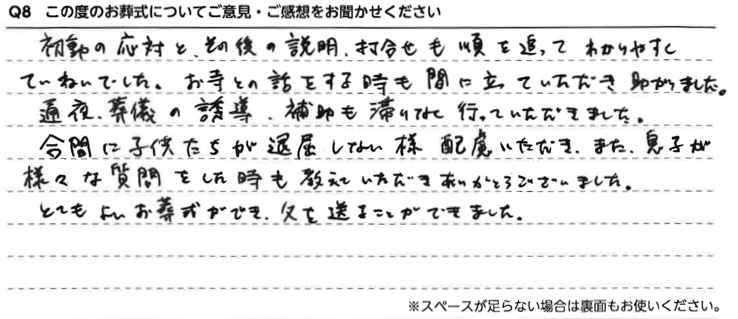 Q8 この度のお葬式についてご意見・ご感想をお聞かせください
初動の応対と、その後の説明、打合せも順を追ってわかりやすく
ていねいでした。お寺との話をする時も間に立っていただき助かりました。
通夜、葬儀の誘導、補助も滞りなく行っていただきました。
合間に子供たちが退屈しない様配慮いただき、また、息子が
様々な質問をした時も教えていただきありがとうございました。
とてもよいお葬式ができ、父を送ることができました。
※スペースが足らない場合は裏面もお使いください。